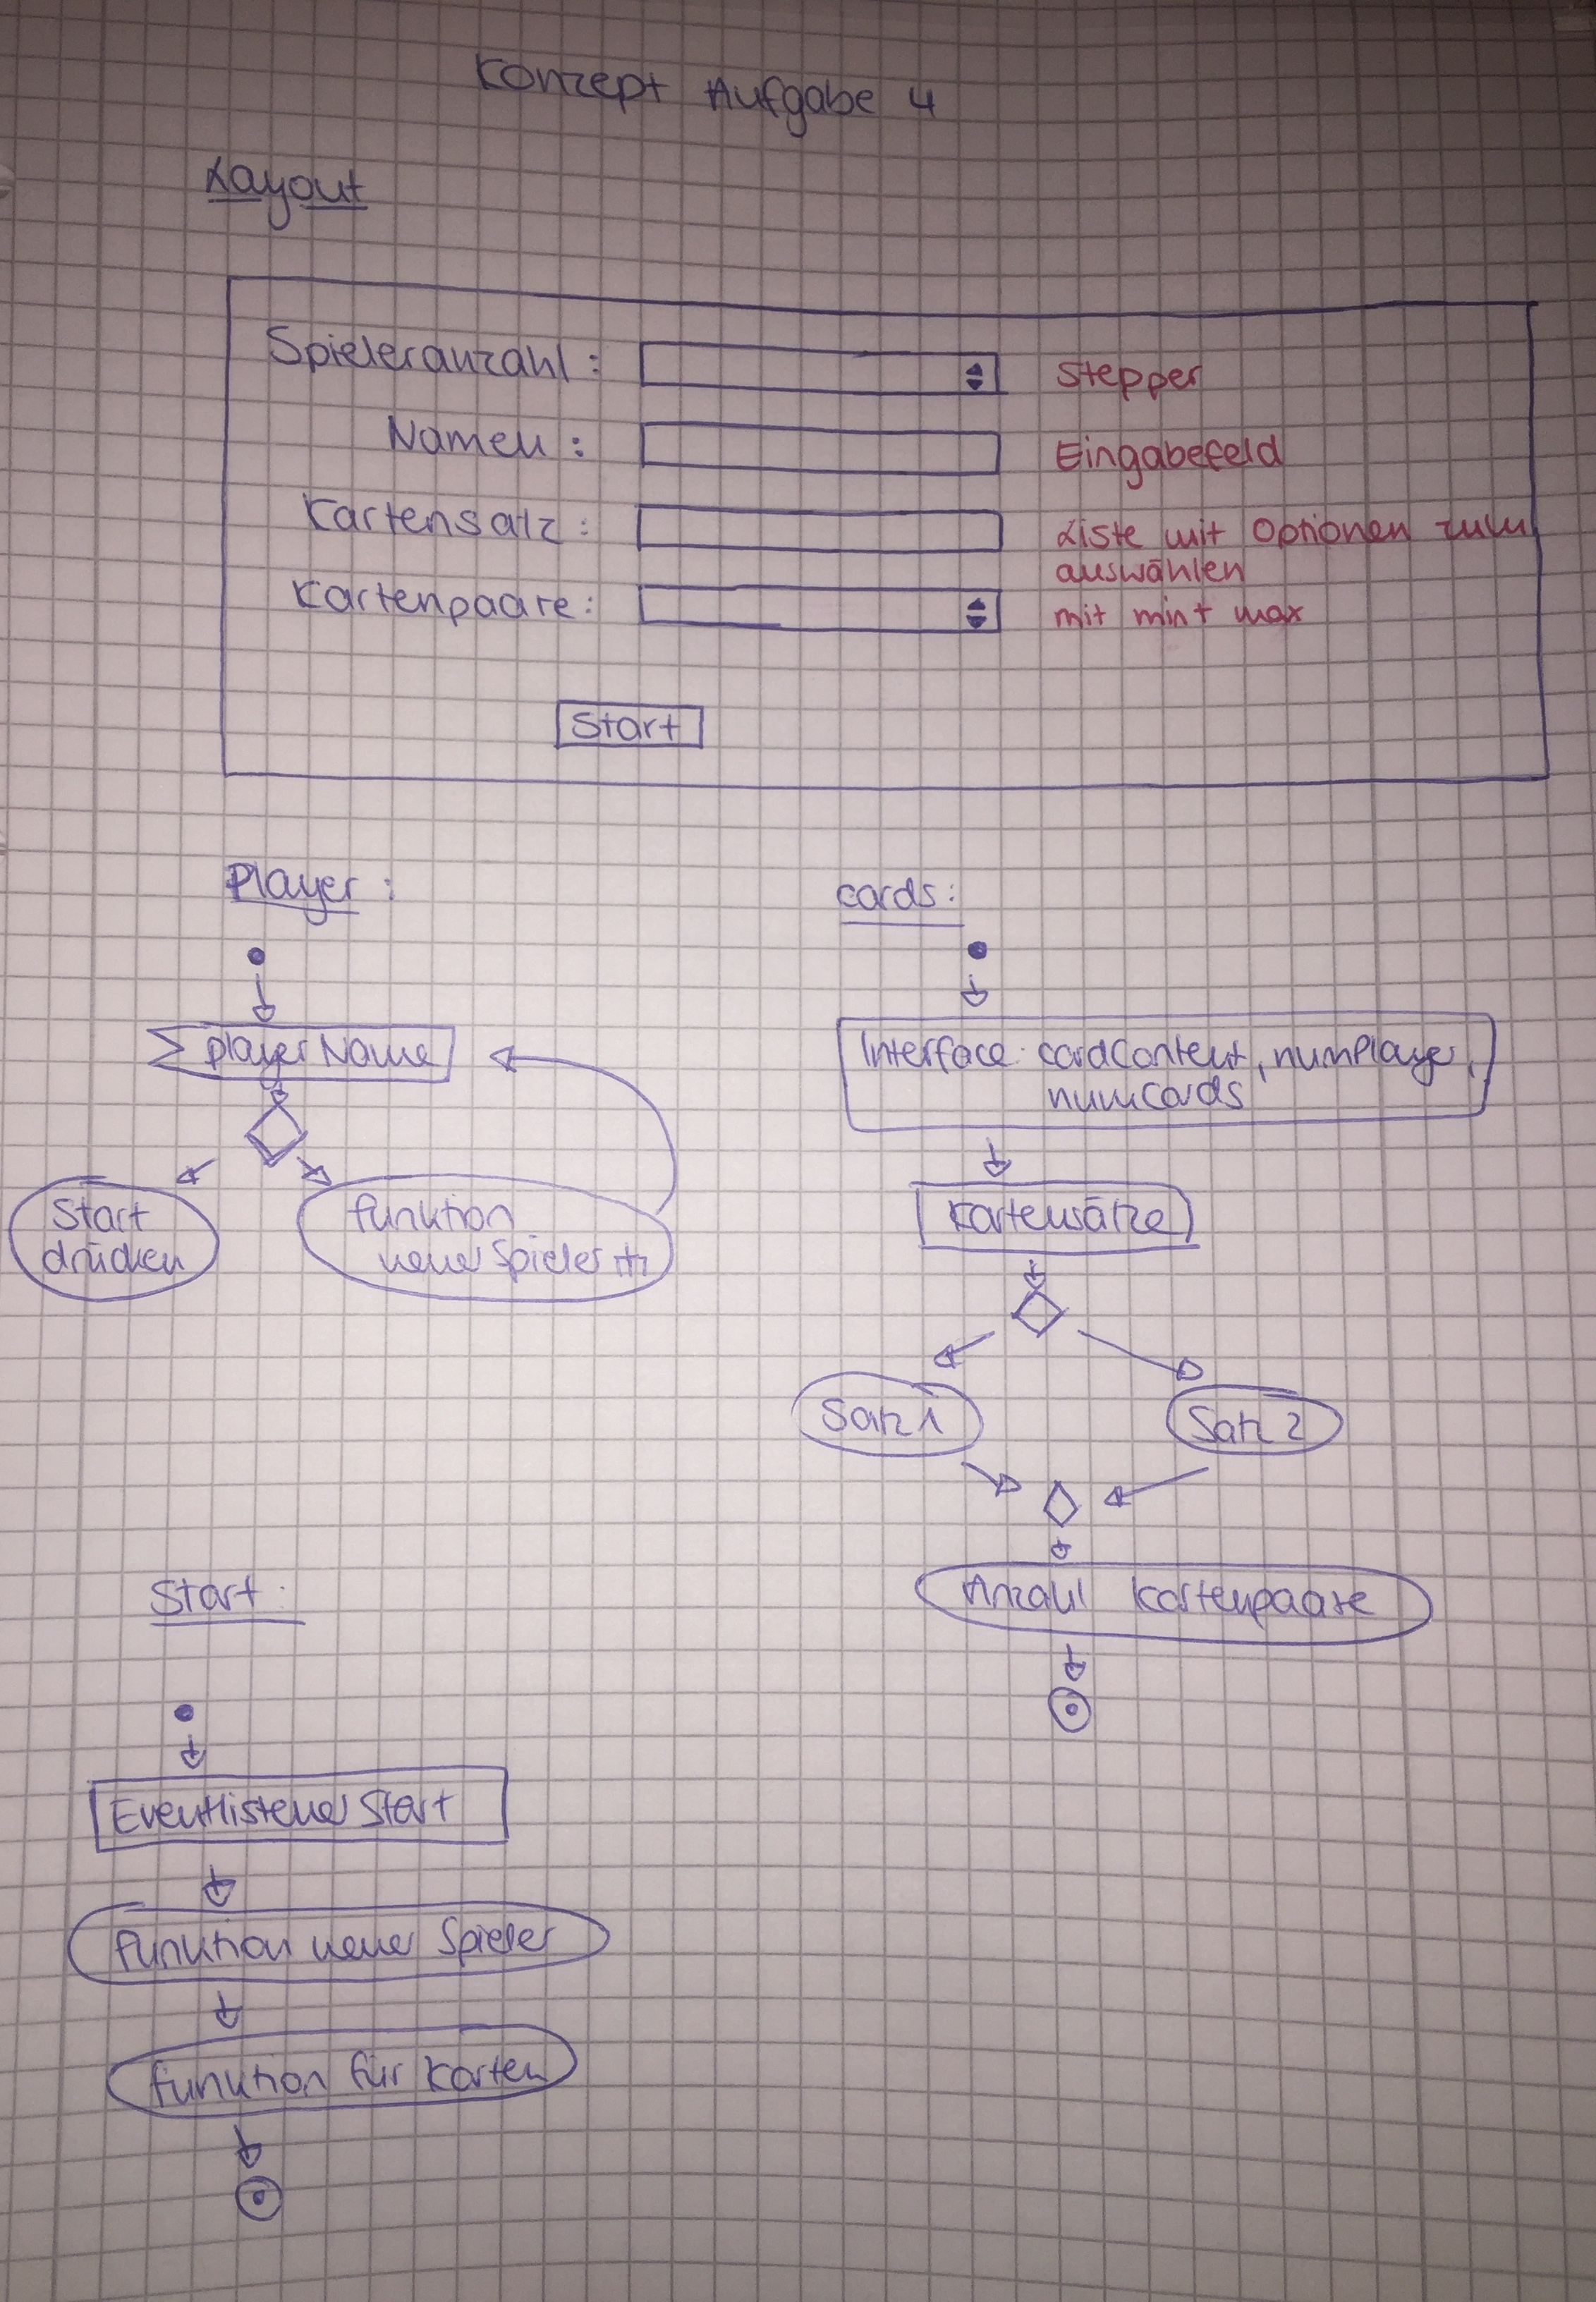 Konzept Aufgabe 4
Layout
Spieleranzahl :
Stepper
Namen :
Eingabefeld
Kartensatz :
Liste mit Optionen zum
auswählen
Kartenpaare :
mit min + max
Start
Player :
playerName
Start
drücken
funktion
neuer Spieler
cards :
Interface: cardContent, numPlayer,
numCards
Kartensätze
Satz 1
Satz 2
Anzahl Kartenpaare
Start :
Eventlistener Start
funktion neuer Spieler
funktion für Karten